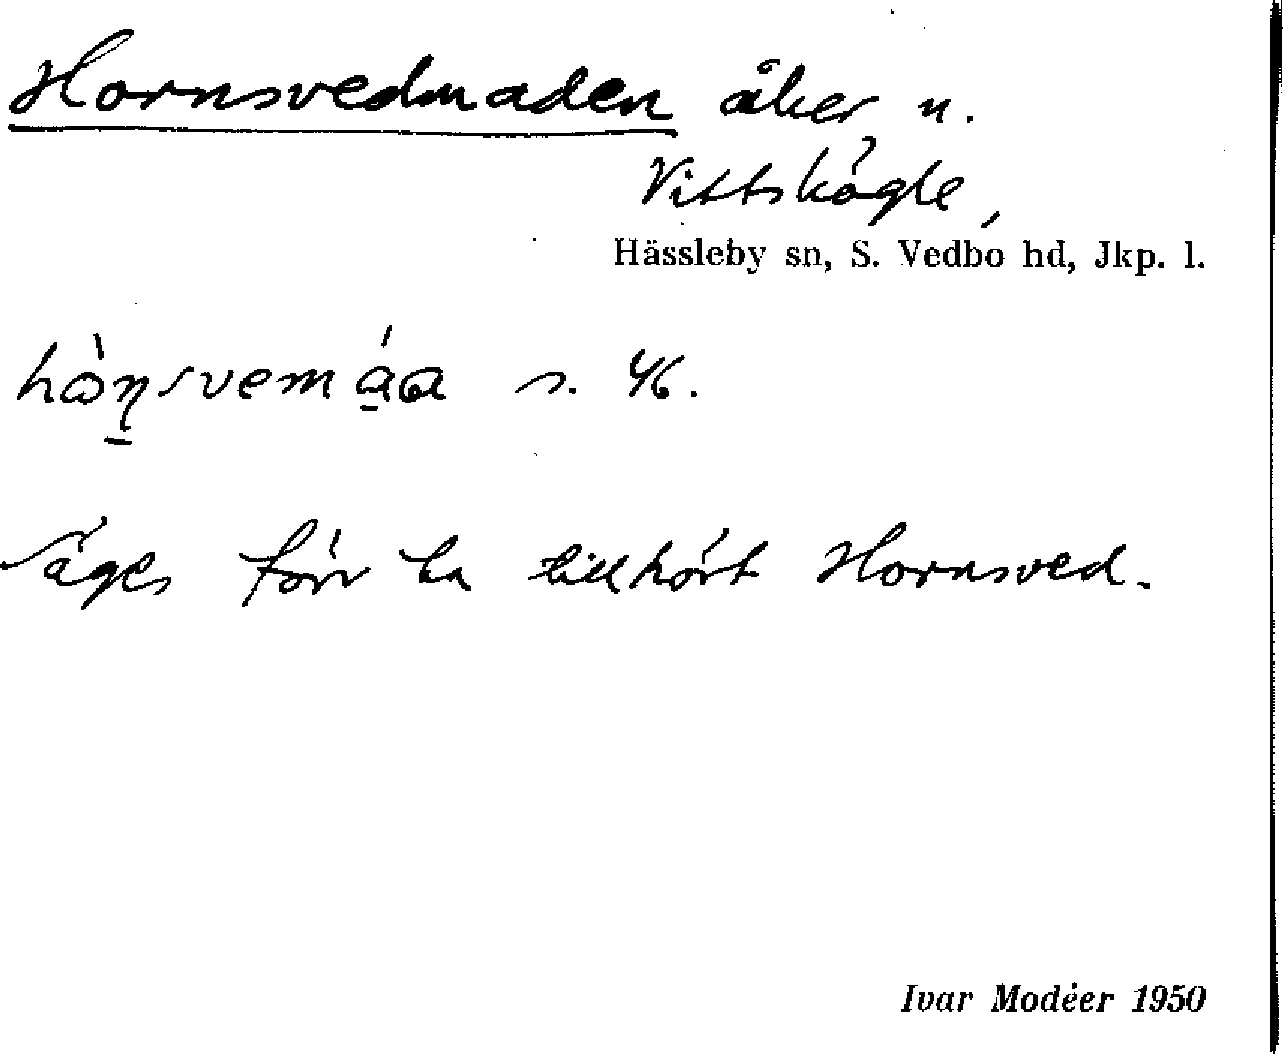 Hornsvedmaden åker n.
Vittskögle,
Hässleby sn, S. Vedbo hd, Jkp. l.
s. 46.
Säges förr ha tillhört Hornsved.
Ivar Modéer 1950